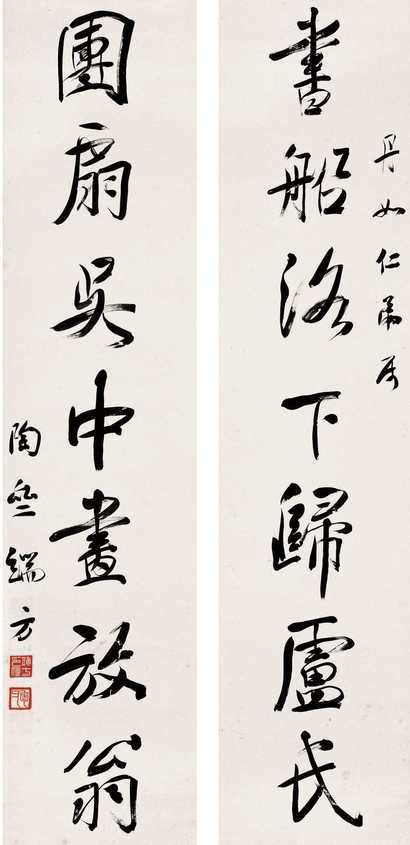 丹如仁弟属
書船洛下歸盧氏
團扇吳中畫放翁
陶齋端方